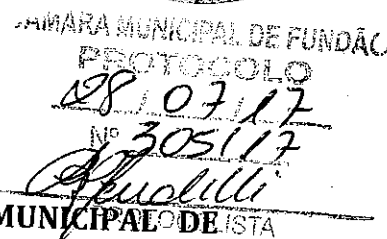 CÂMARA MUNICIPAL DE FUNDÃO
PROTOCOLO
28 / 07 / 17
Nº 305/17
MUNICIPAL DE